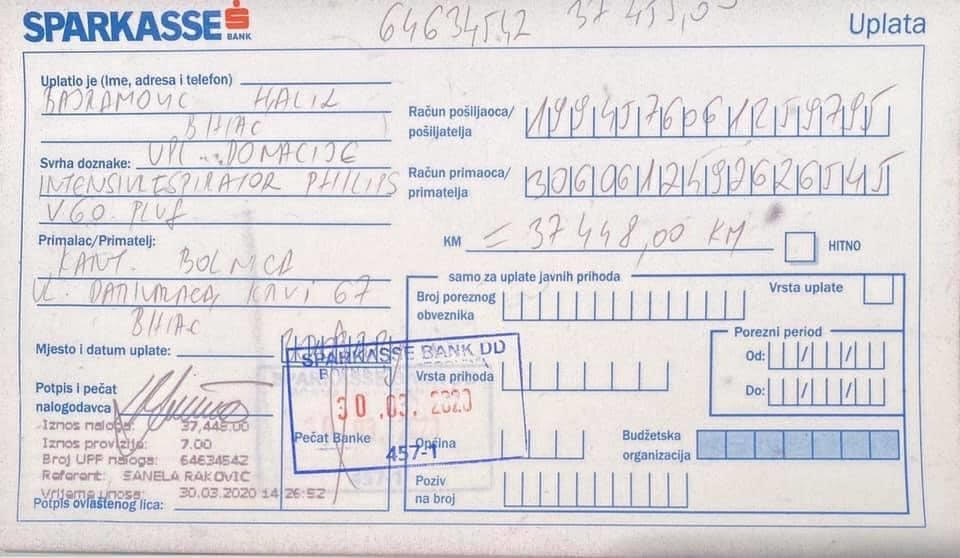 SPARKASSE
BANK
64634542 37 455,0
Uplata
Uplatio je (Ime, adresa i telefon)
BAJRAMOVIC HALIL
BIHAC
Svrha doznake: UPL. DONACIJE
INTENSIV RESPIRATOR PHILIPS
V60 PLUS
Primalac/Primatelj:
KANT. BOLNICA
UL. DARIVALACA KRVI 67
BIHAC
Mjesto i datum uplate:
Potpis i pečat
nalogodavca
Iznos naloga: 37,448.00
Iznos provizije: 7.00
Broj UPP naloga: 64634542
Referent: SANELA RAKOVIC
Vrijeme unosa: 30.03.2020 14:26:52
Potpis ovlaštenog lica:
Račun pošiljaoca/
pošiljatelja
1994576061259795
Račun primaoca/
primatelja
3060612492626545
KM = 37 448,00 KM
HITNO
samo za uplate javnih prihoda
Broj poreznog
obveznika
Vrsta uplate
Porezni period
Od: / /
Do: / /
SPARKASSE BANK DD
Vrsta prihoda
30.03.2020
Pečat Banke
Općina
457-1
Budžetska
organizacija
Poziv
na broj